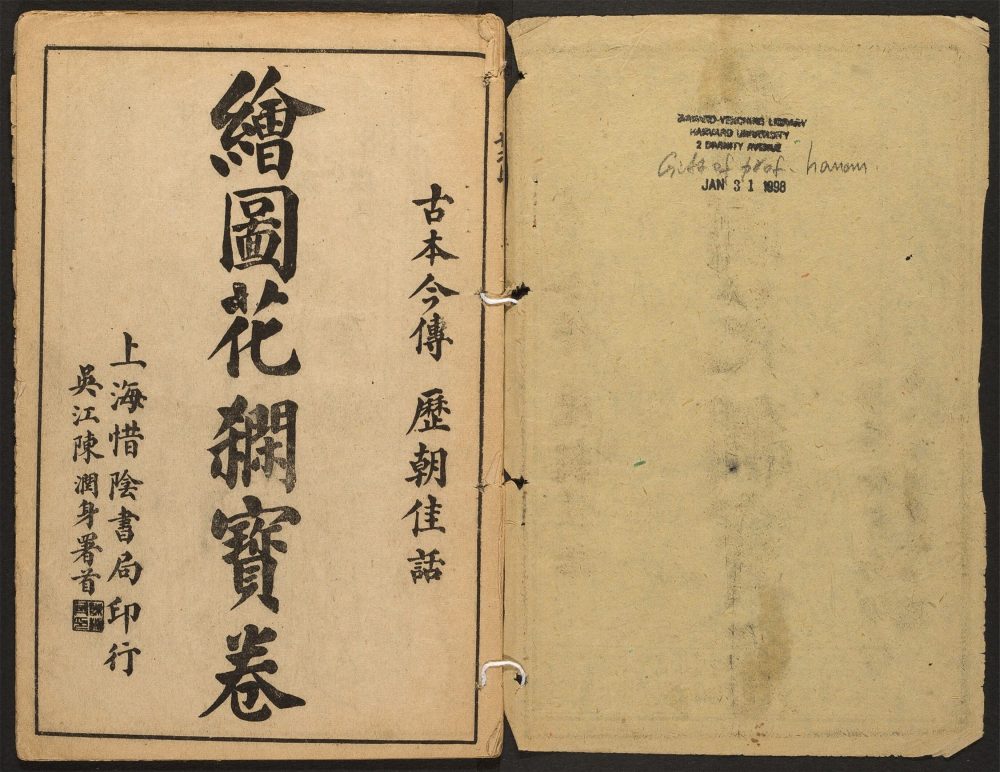 HARVARD-YENCHING LIBRARY
HARVARD UNIVERSITY
2 DIVINITY AVENUE
Gift of prof. hanan.
JAN 31 1998
古本今傳 歷朝佳話
繪圖花寶卷
上海惜陰書局印行
吳江陳潤身署首